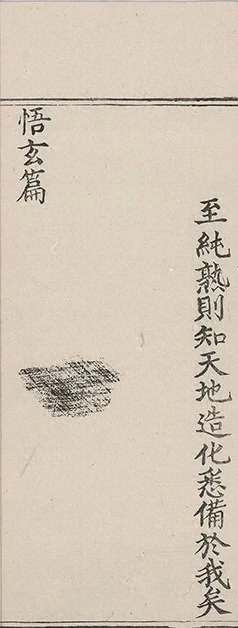 至純熟則知天地造化悉備於我矣
悟玄篇